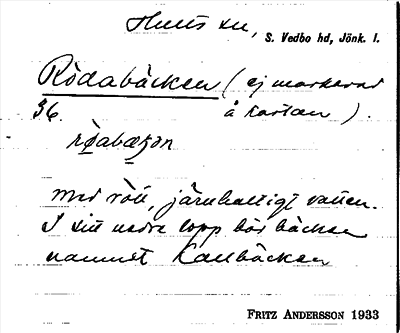 Hults sn,
S. Vedbo hd, Jönk. l.
Rödabäcken (ej markerad
36. å kartan).
med rött, järnhaltigt vatten.
I sitt nedre lopp bär bäcken
namnet Kallbäcken
FRITZ ANDERSSON 1933